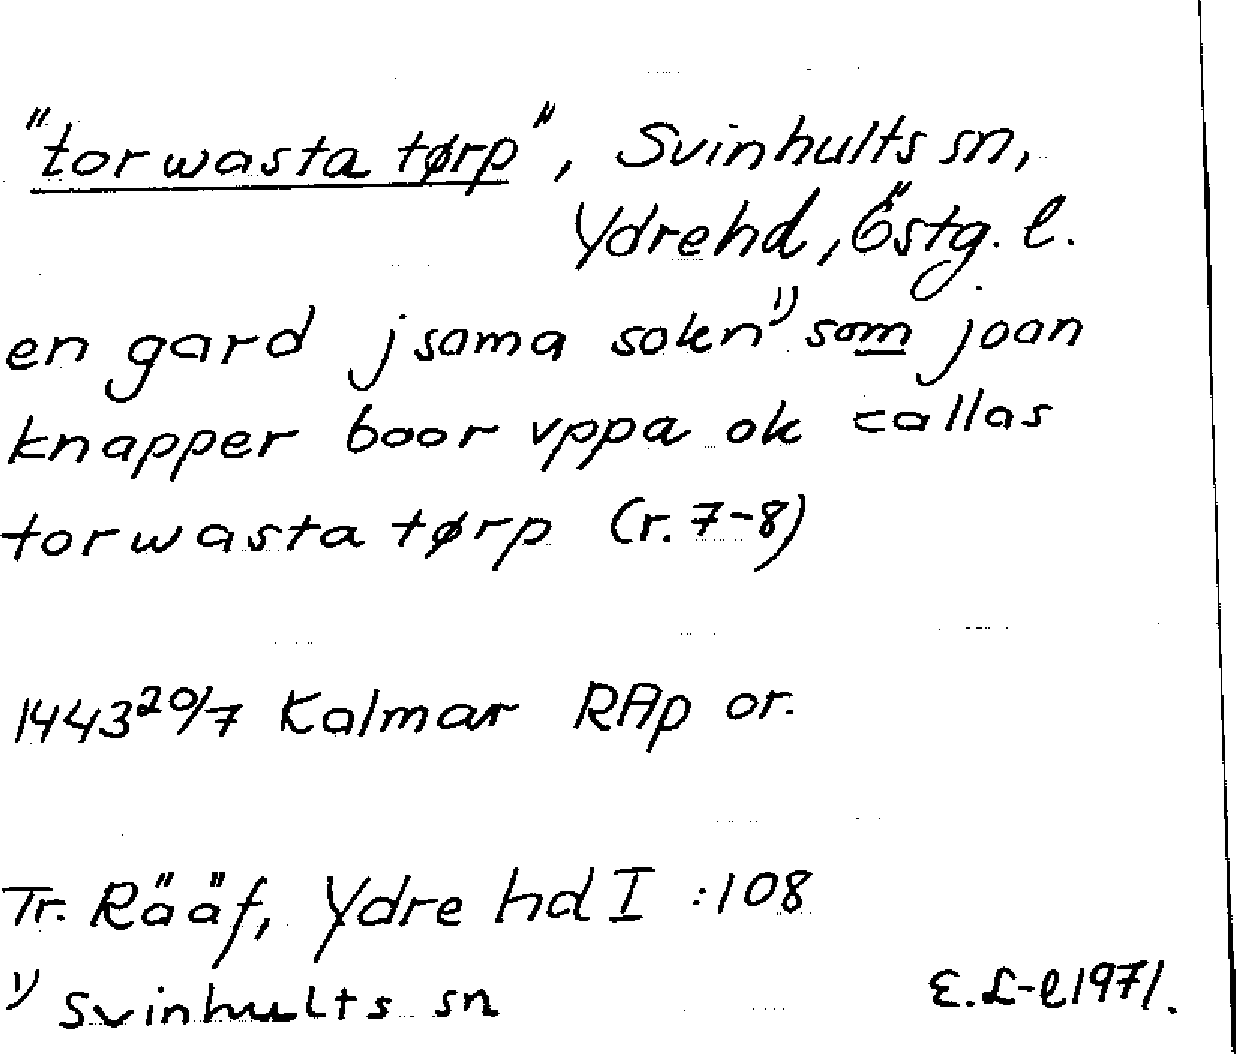 "torwasta tørp", Svinhults sn,
Ydre hd, Östg. l.
en gard j sama sokn¹⁾ som joan
knapper boor vppa ok callas
torwasta tørp (r. 7-8)
1443 20/7 Kalmar RAp or.
Tr. Rääf, Ydre hd I :108
¹⁾ Svinhults sn
E. L-l 1971.